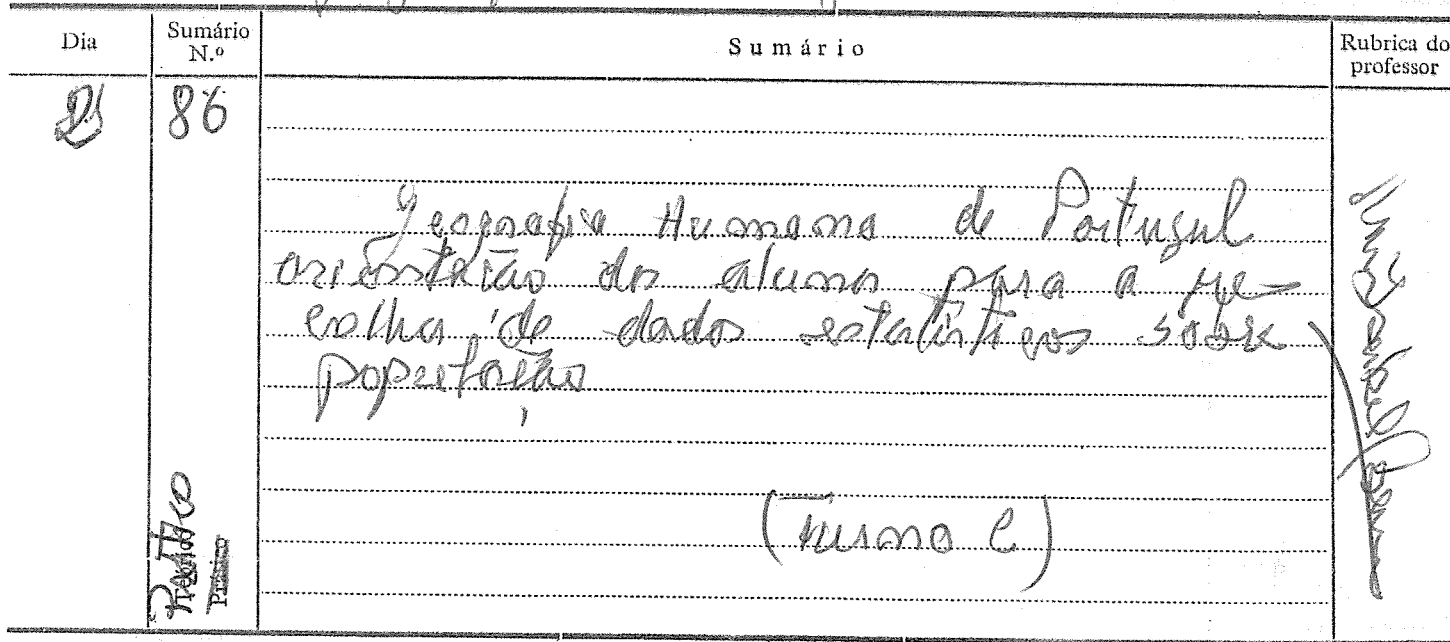 Dia Sumário N.º Sumário Rubrica do professor
21 86
Geografia Humana de Portugal
orientação dos alunos para a re-
colha de dados estatísticos sobre
população
(Turma C)
Prático